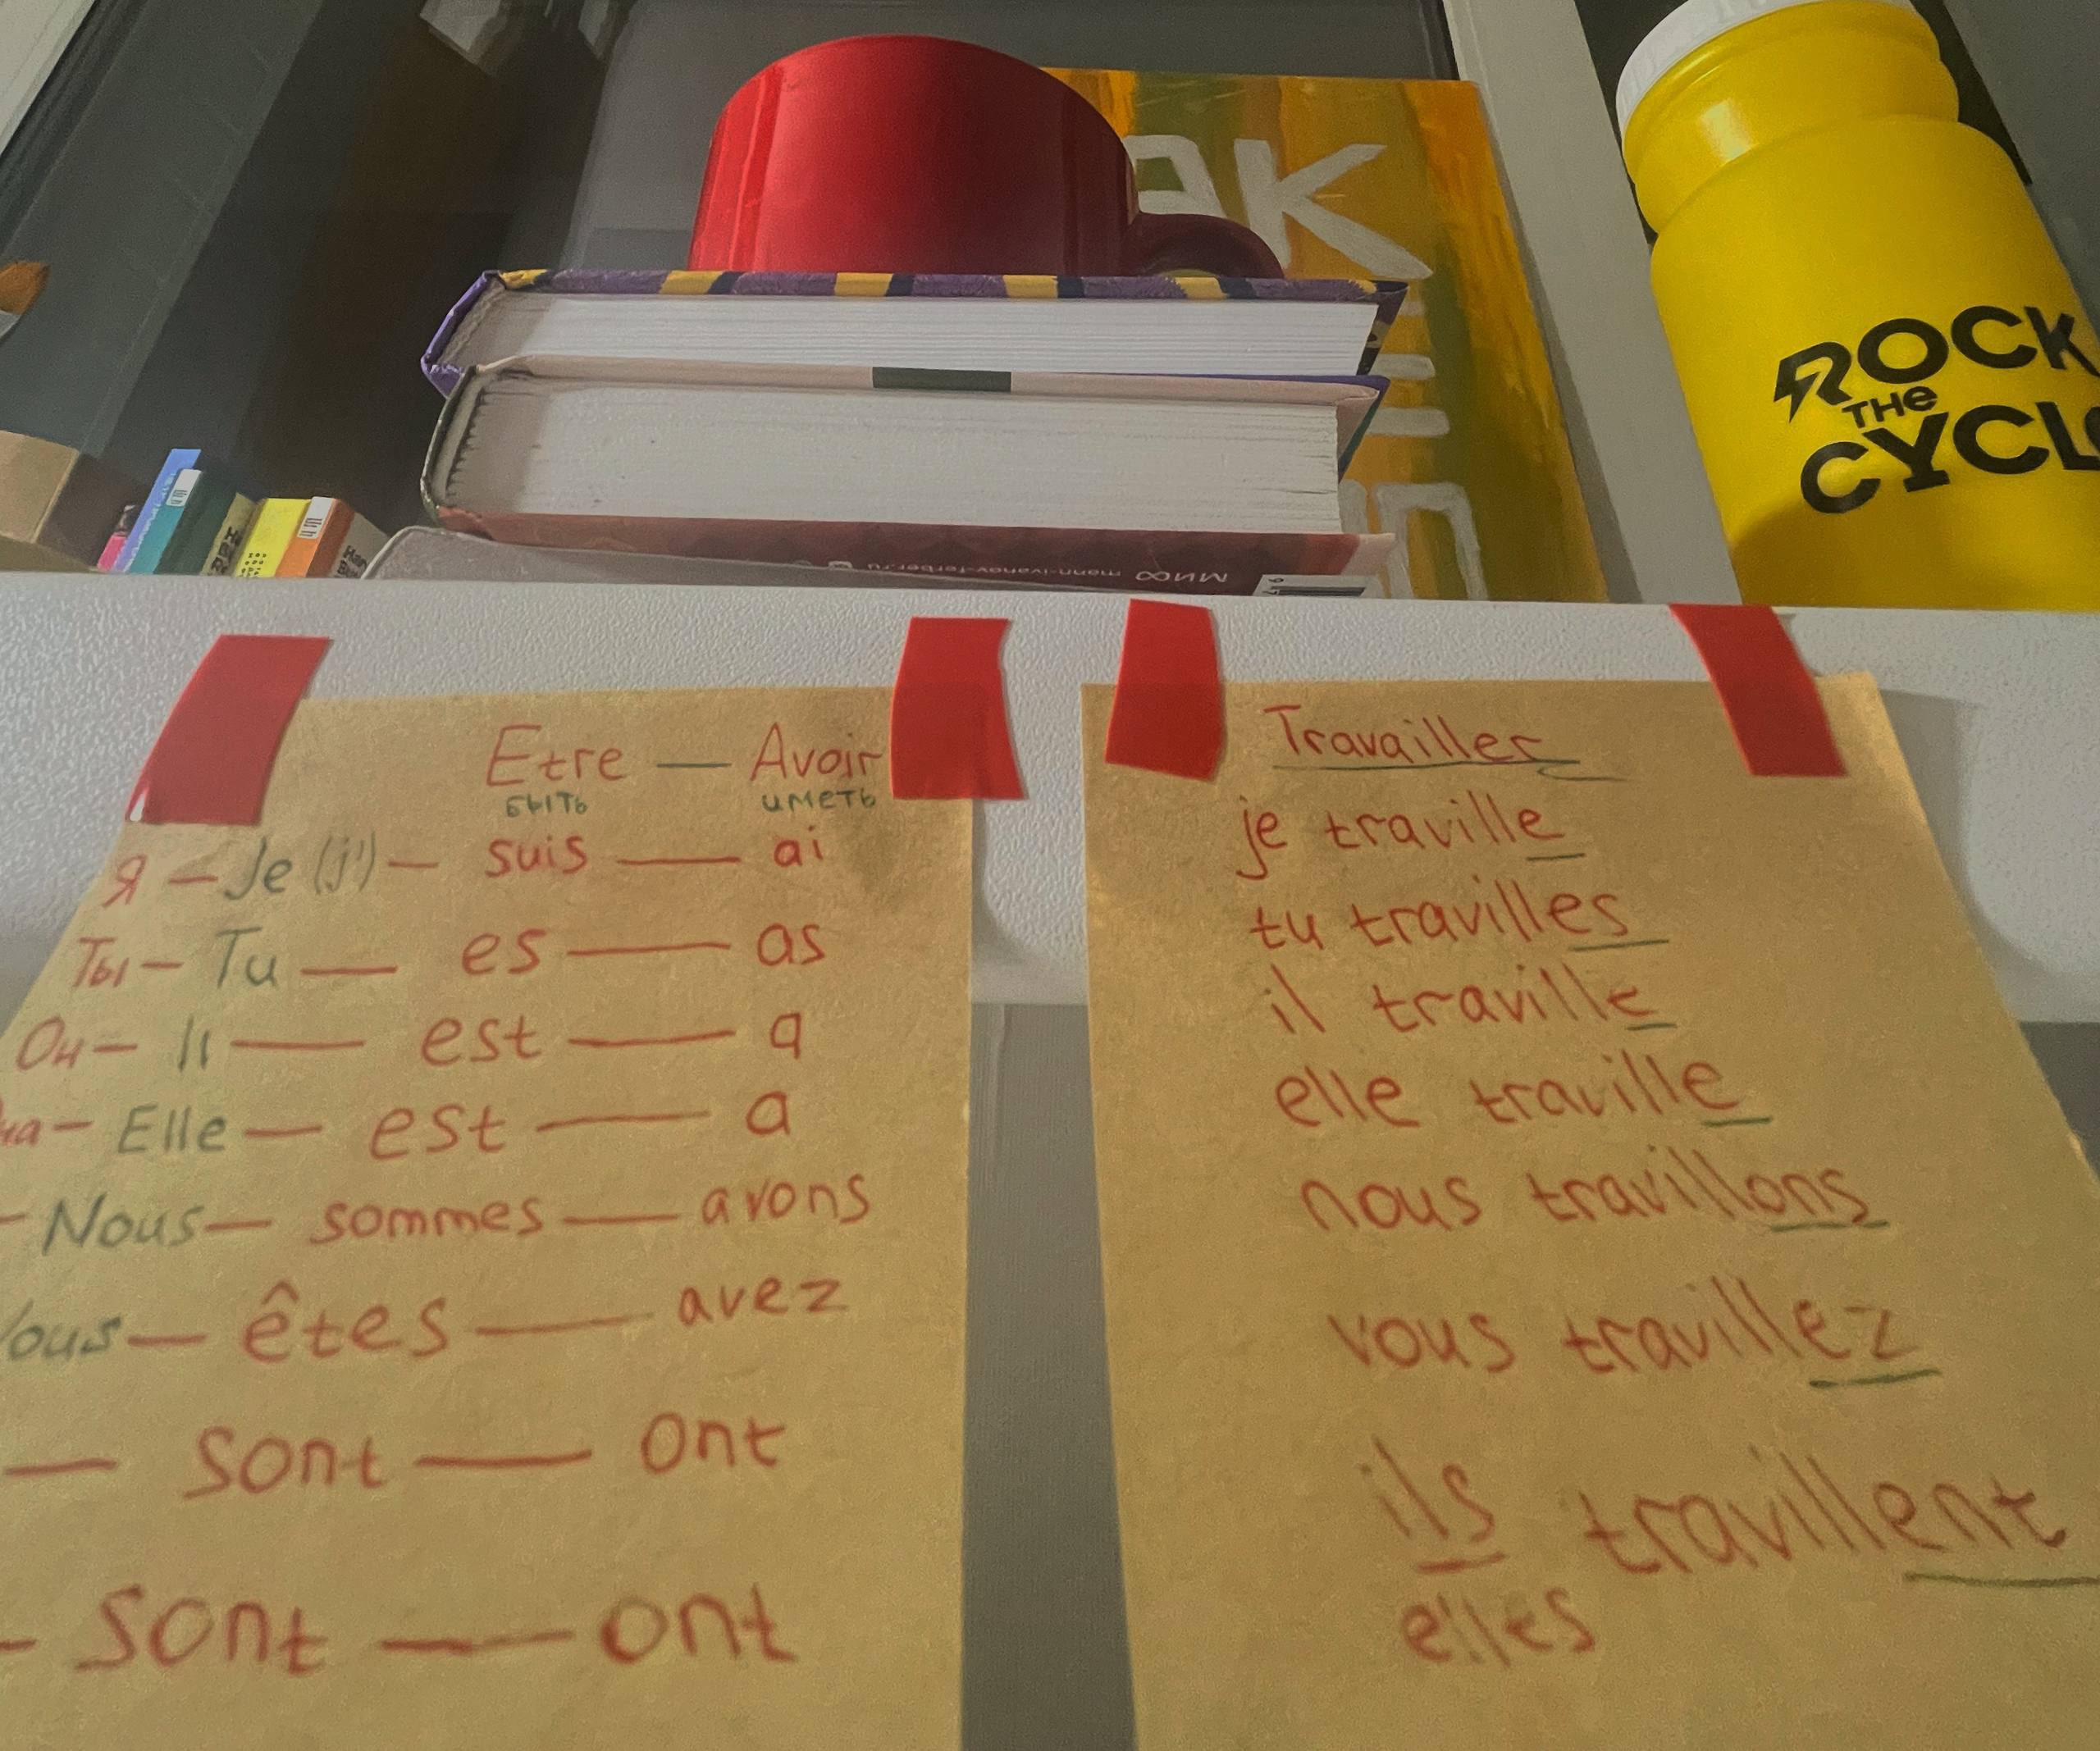 AK
ROCK
THE
CYCL
МИФ mann-ivanov-ferber.ru
Etre — Avoir
быть иметь
Я — Je (j') — suis — ai
Ты — Tu — es — as
Он — Il — est — a
на — Elle — est — a
— Nous — sommes — avons
Vous — êtes — avez
— sont — ont
- sont — ont
Travailler
je traville
tu travilles
il traville
elle traville
nous travillons
vous travillez
ils travillent
elles